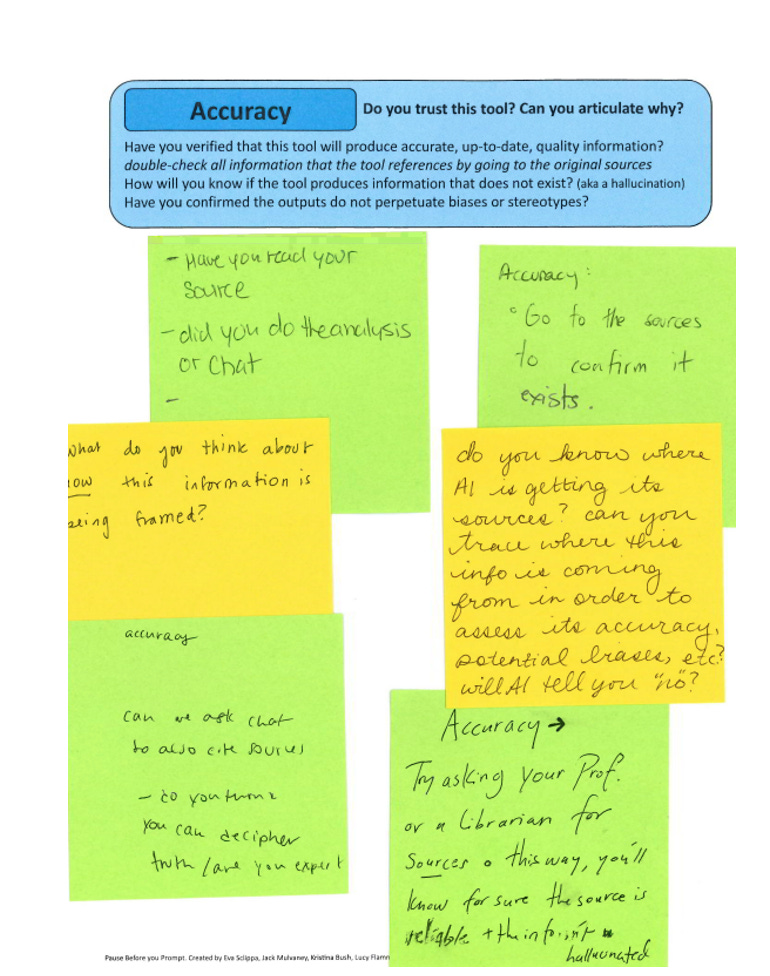 Accuracy
Do you trust this tool? Can you articulate why?
Have you verified that this tool will produce accurate, up-to-date, quality information?
double-check all information that the tool references by going to the original sources
How will you know if the tool produces information that does not exist? (aka a hallucination)
Have you confirmed the outputs do not perpetuate biases or stereotypes?
- Have you read your
source
- did you do the analysis
or Chat
-
Accuracy:
° Go to the sources
to confirm it
exists.
what do you think about
how this information is
being framed?
do you know where
AI is getting its
sources? can you
trace where this
info is coming
from in order to
assess its accuracy,
potential biases, etc?
will AI tell you "no"?
accuracy
can we ask chat
to also cite sources
- do you think
you can decipher
truth / are you expert
Accuracy →
Try asking your Prof.
or a Librarian for
Sources o this way, you'll
know for sure the source is
reliable + the info isn't
hallucinated
Pause Before you Prompt. Created by Eva Sclippa, Jack Mulvaney, Kristina Bush, Lucy Flamm